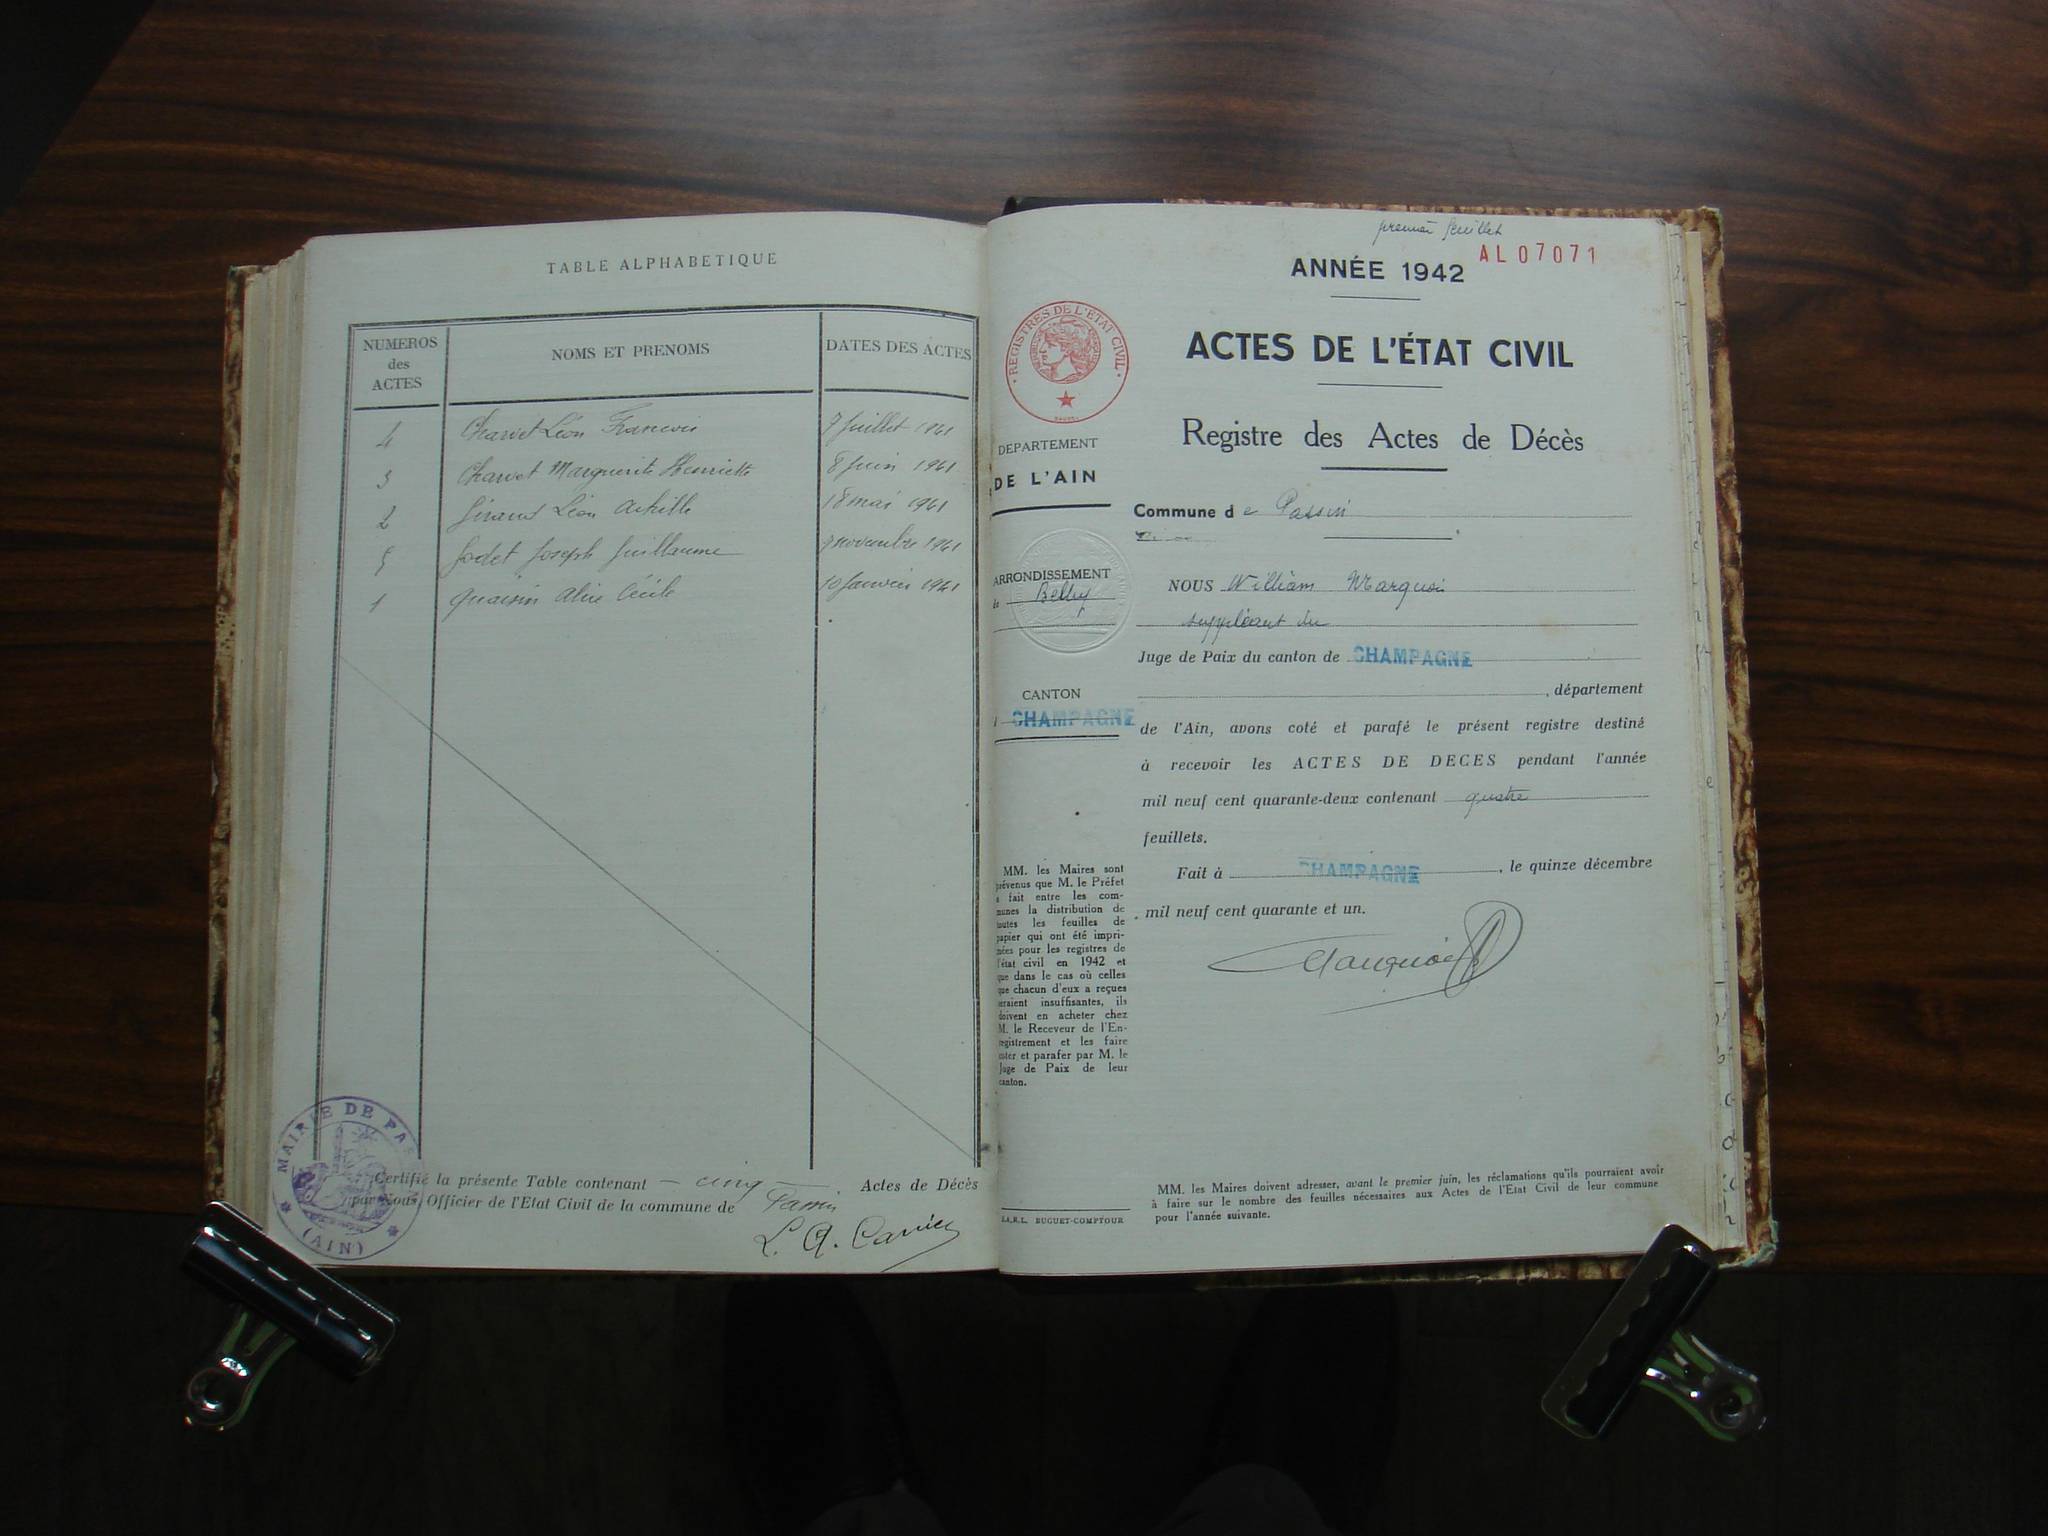 TABLE ALPHABETIQUE
NUMEROS des ACTES
NOMS ET PRENOMS
DATES DES ACTES
4 Charvet Léon Francois 7 Juillet 1941
3 Charvet Marguerite Henriette 8 Juin 1941
2 Léon Achille 18 mai 1941
5 Godet Joseph Guillaume 9 novembre 1941
1 Quaisin Alice Cécile 10 Janvier 1941
Certifié la présente Table contenant — cinq — Actes de Décès
par Nous Officier de l'Etat Civil de la commune de Passin
L. A. Carrier
MAIRIE DE PAS
(AIN)
premier feuillet
AL07071
ANNÉE 1942
ACTES DE L'ÉTAT CIVIL
Registre des Actes de Décès
REGISTRES DE L'ETAT CIVIL
DEPARTEMENT
DE L'AIN
ARRONDISSEMENT
de Belley
CANTON
CHAMPAGNE
MM. les Maires sont
prévenus que M. le Préfet
a fait entre les com-
munes la distribution de
toutes les feuilles de
papier qui ont été impri-
mées pour les registres de
l'état civil en 1942 et
que dans le cas où celles
que chacun d'eux a reçues
seraient insuffisantes, ils
doivent en acheter chez
M. le Receveur de l'En-
registrement et les faire
coter et parafer par M. le
Juge de Paix de leur
canton.
S.A.R.L. BUGUET-COMPTOUR
Commune de Passin
NOUS William Marquois
suppléant du
Juge de Paix du canton de CHAMPAGNE
, département
de l'Ain, avons coté et parafé le présent registre destiné
à recevoir les ACTES DE DECES pendant l'année
mil neuf cent quarante-deux contenant quatre
feuillets.
Fait à CHAMPAGNE, le quinze décembre
mil neuf cent quarante et un.
MM. les Maires doivent adresser, avant le premier juin, les réclamations qu'ils pourraient avoir
à faire sur le nombre des feuilles nécessaires aux Actes de l'Etat Civil de leur commune
pour l'année suivante.